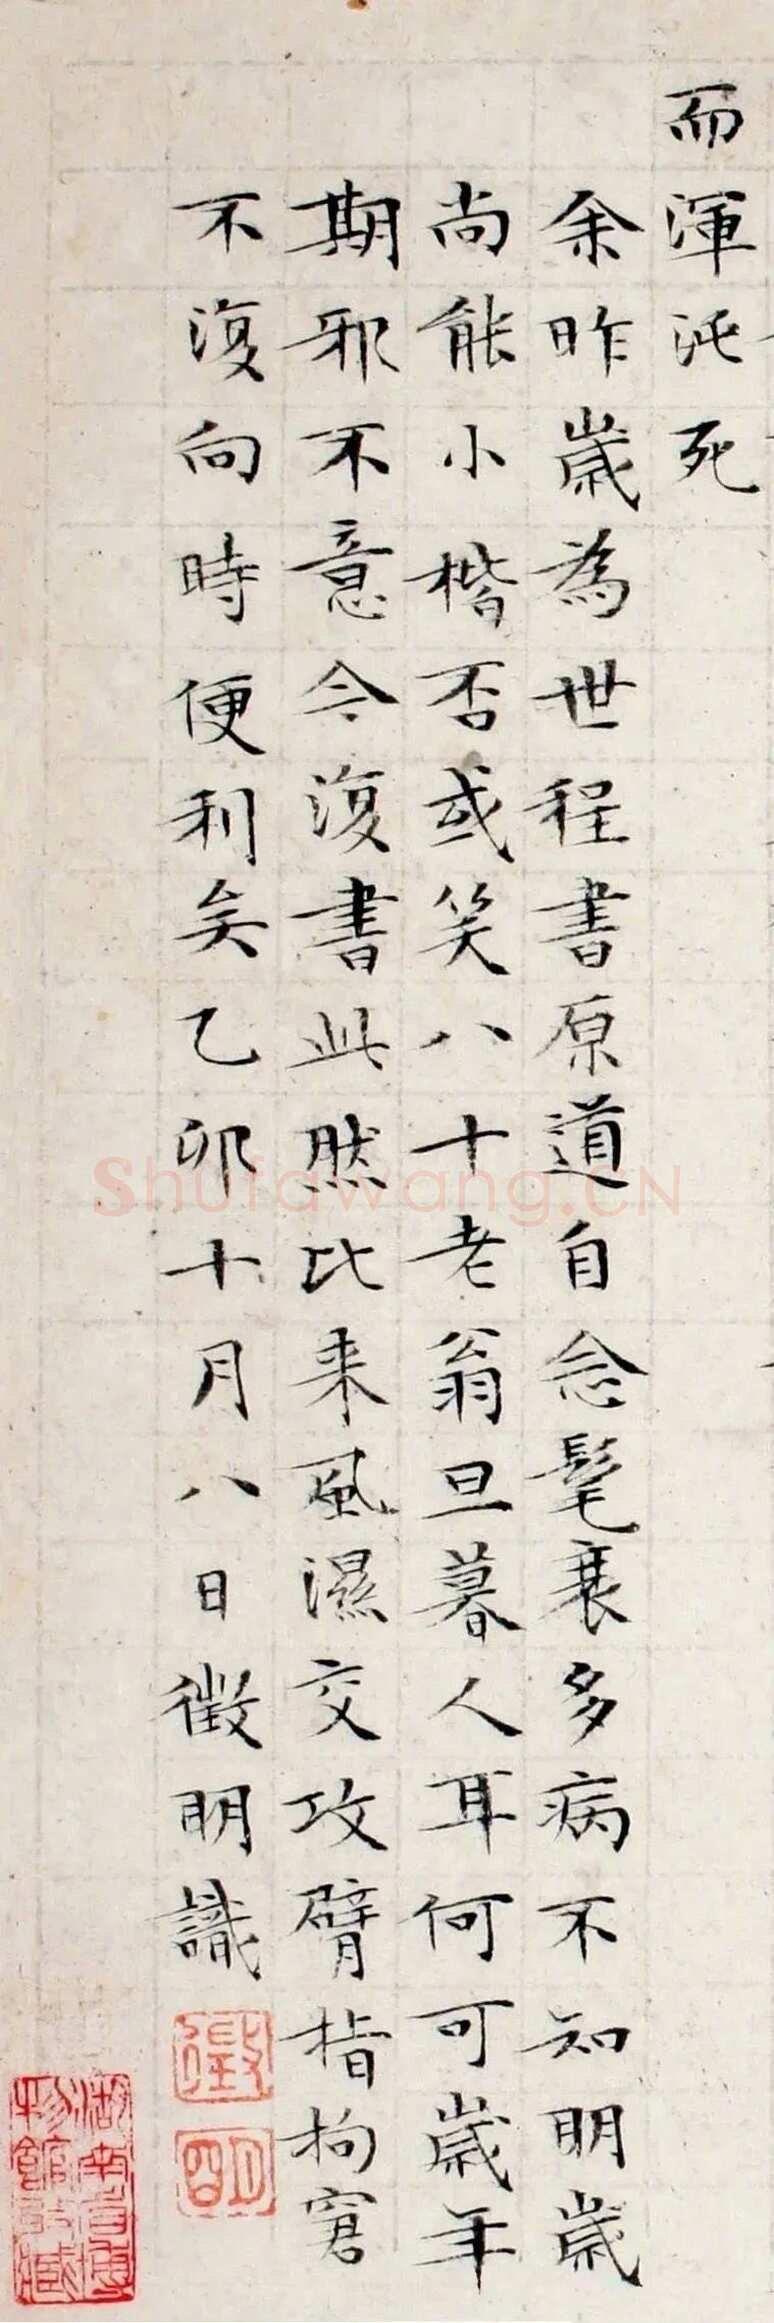 而渾沌死
余昨歲為世程書原道自念髦衰多病不知明歲
尚能小楷否或笑八十老翁旦暮人耳何可歲年
期邪不意今復書此然比来風濕交攻臂指拘窘
不復向時便利矣乙卯十月八日徵明識
徵
明
湖南省博
物館所藏
shufawang.CN